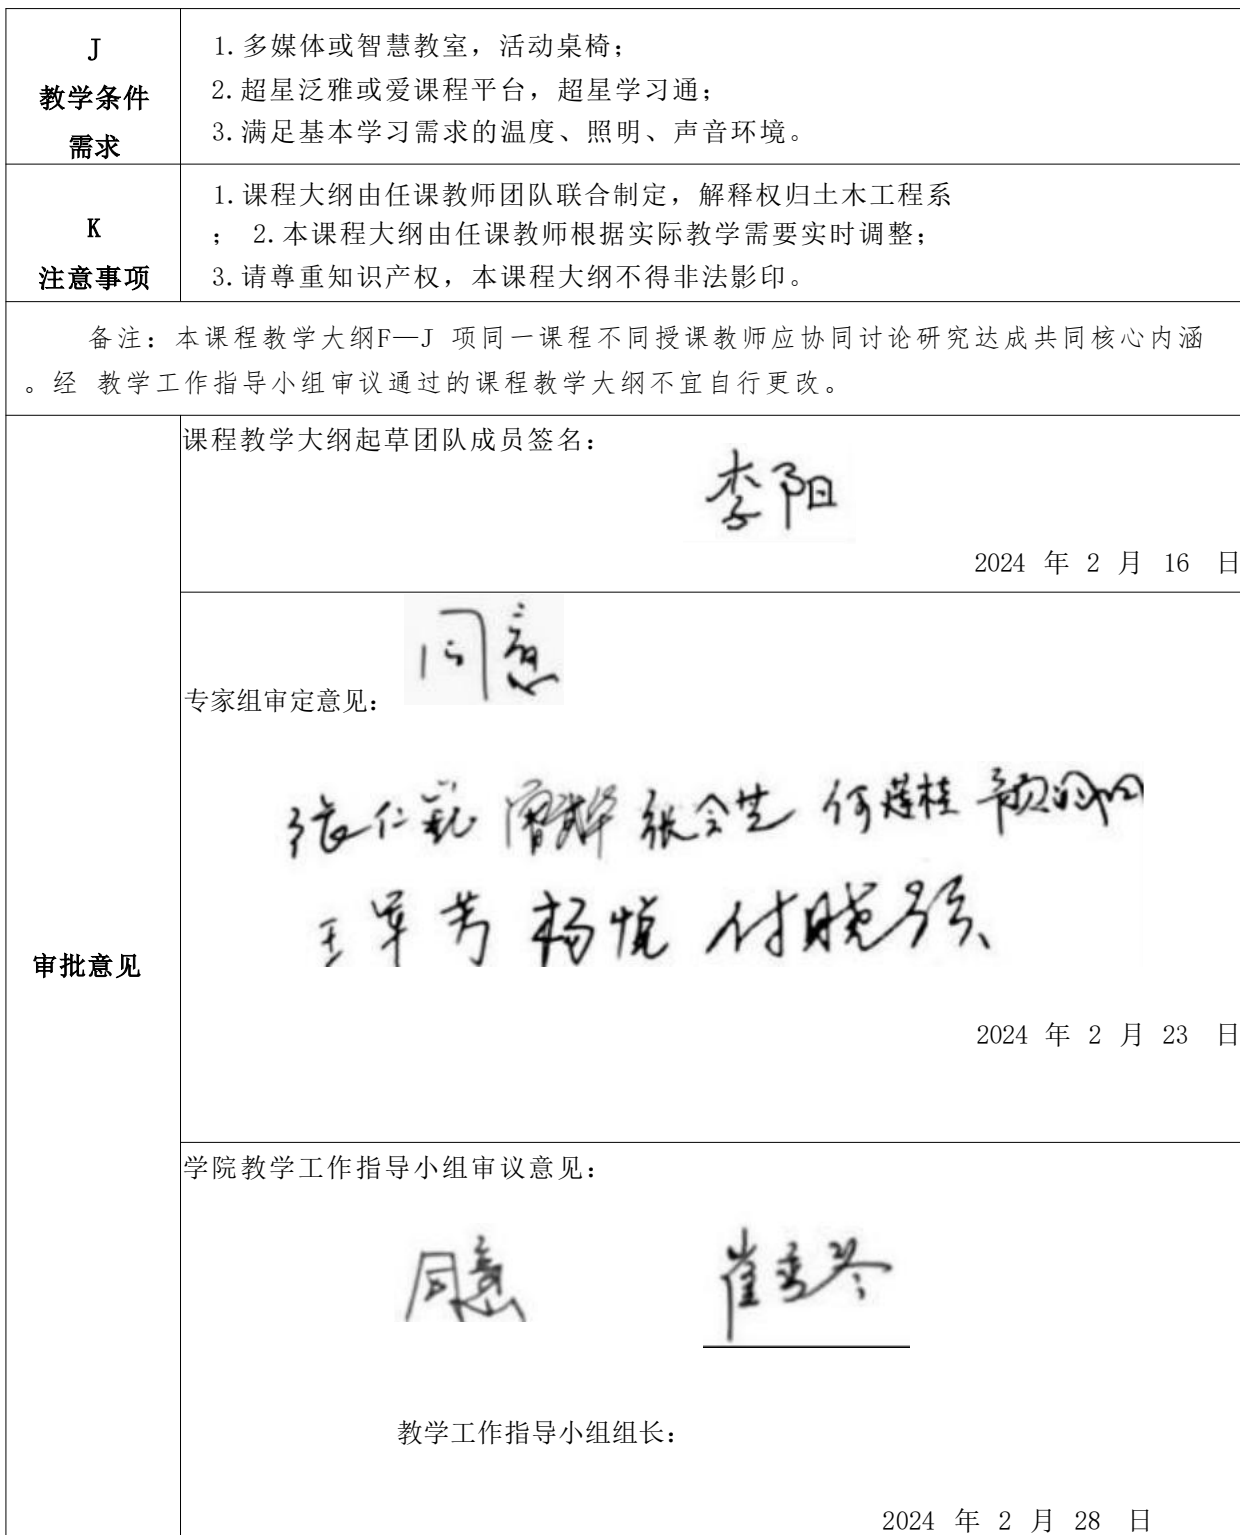 J
教学条件
需求
1.多媒体或智慧教室，活动桌椅；
2.超星泛雅或爱课程平台，超星学习通；
3.满足基本学习需求的温度、照明、声音环境。
K
注意事项
1.课程大纲由任课教师团队联合制定，解释权归土木工程系
； 2.本课程大纲由任课教师根据实际教学需要实时调整；
3.请尊重知识产权，本课程大纲不得非法影印。
备注：本课程教学大纲F—J 项同一课程不同授课教师应协同讨论研究达成共同核心内涵
。经 教学工作指导小组审议通过的课程教学大纲不宜自行更改。
审批意见
课程教学大纲起草团队成员签名：
李阳
2024 年 2 月 16 日
同意
专家组审定意见：
张仁 张会芝 何莲桂
王军芳 杨悦 付晓强
2024 年 2 月 23 日
学院教学工作指导小组审议意见：
同意 崔秀琴
教学工作指导小组组长：
2024 年 2 月 28 日